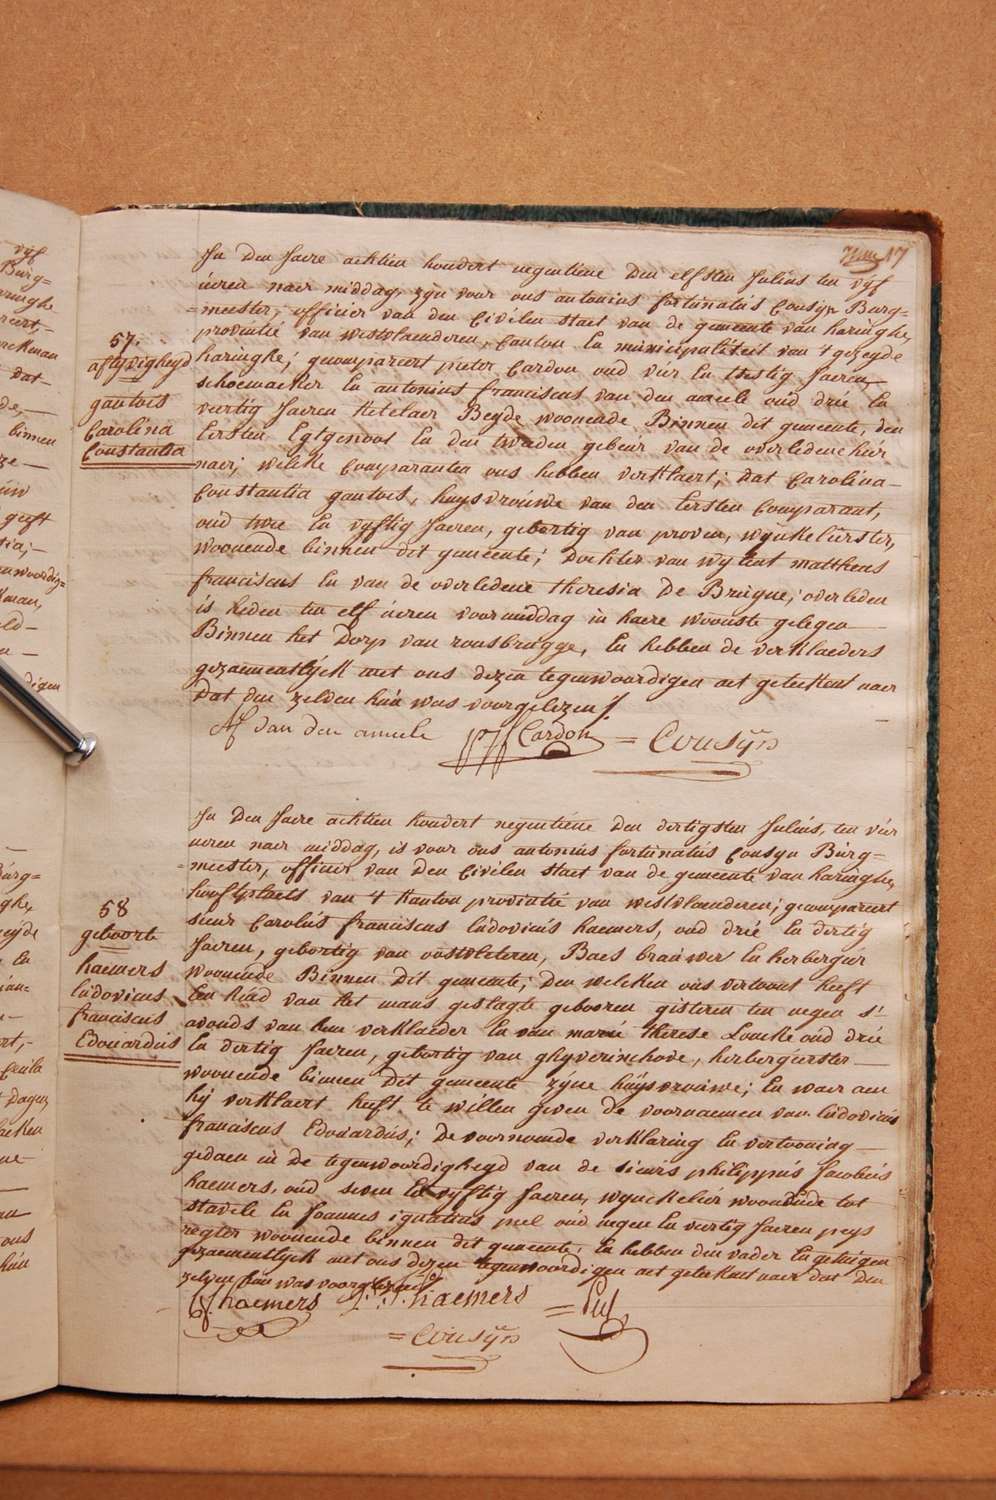 17
In Den Jaere achtien hondert negentiene Den elfsten Julius ten vyf
ueren naer middag, zyn voor ons antonius fortunatus Cousyn Burg=
=meester, officier van den Civilen staet van de gemeente van haringhe,
provintie van westvlaenderen, Canton en municipaliteit van 't gezeyde
haringhe; gecompareert pieter Cardon oud vier en tsestig Jaeren
schoemaeker en antonius franciscus van den ameele oud drie en
veertig Jaeren ketelaer Beyde woonende Binnen dit gemeente, den
Eersten Egtgenoot en den tweeden gebeur van de overledene hier
naer; welke Comparanten ons hebben verklaert; dat Carolina
Constantia gautois, huysvrouwe van den Eersten Comparant,
oud twee en vyftig Jaeren, geboortig van proven, wynkelierster,
woonende binnen dit gemeente; Dochter van wylent mattheus
franciscus en van de overledene theresia De Bruyne; overleden
is heden ten elf ueren voormiddag in haere wooniste gelegen
Binnen het Dorp van rousbrugge, En hebben de verklaeders
gezaementlyck met ons dezen tegenwoordigen act geteekent naer
Dat den zelden hun was voorgelezen
57.
aflyvigheyd
gautois
Carolina
Constantia
AF van den ameele PJ Cardon = Cousyn
In Den Jaere achtien hondert negentiene Den dertigsten Julius, ten vier
ueren naer middag, is voor ons antonius fortunatus Cousyn Burg=
=meester, officier van Den Civilen staet van de gemeente van haringhe,
hooftplaets van 't kanton provintie van westvlaenderen; gecompareert
sieur Carolus franciscus ludovicus haemers, oud drie en dertig
Jaeren, geboortig van oostvleteren, Baes brauwer en herbergier
woonende Binnen Dit gemeente; Den welcken ons vertoont heeft
Een kind van het mans geslagte gebooren gisteren ten negen s'
avonds van hem verklaeder en van marie therese Loucke oud drie
En dertig Jaeren, geboortig van ghyverinchove, herbergierster
woonende binnen Dit gemeente zyne huysvrouwe; En waer aen
hy verklaert heeft te willen geven de voornaemen van ludovicus
franciscus Edouardus; De voornoemde verklaring en vertooning
gedaen in De tegenwoordigheyd van de sieurs philippus Jacobus
haemers, oud seven En vyftig Jaeren, wynckelier woonende tot
stavele En Joannes ignatius peel oud negen En vertig Jaeren peys
regter woonende binnen dit gemeente; En hebben den vader En getuigen
gezaementlyck met ons dezen tegenwoordigen act geteekent naer dat den
zelven hun was voorgelezen
58
geboorte
haemers
ludovicus
franciscus
Edouardus
haemers haemers =
= Cousyn